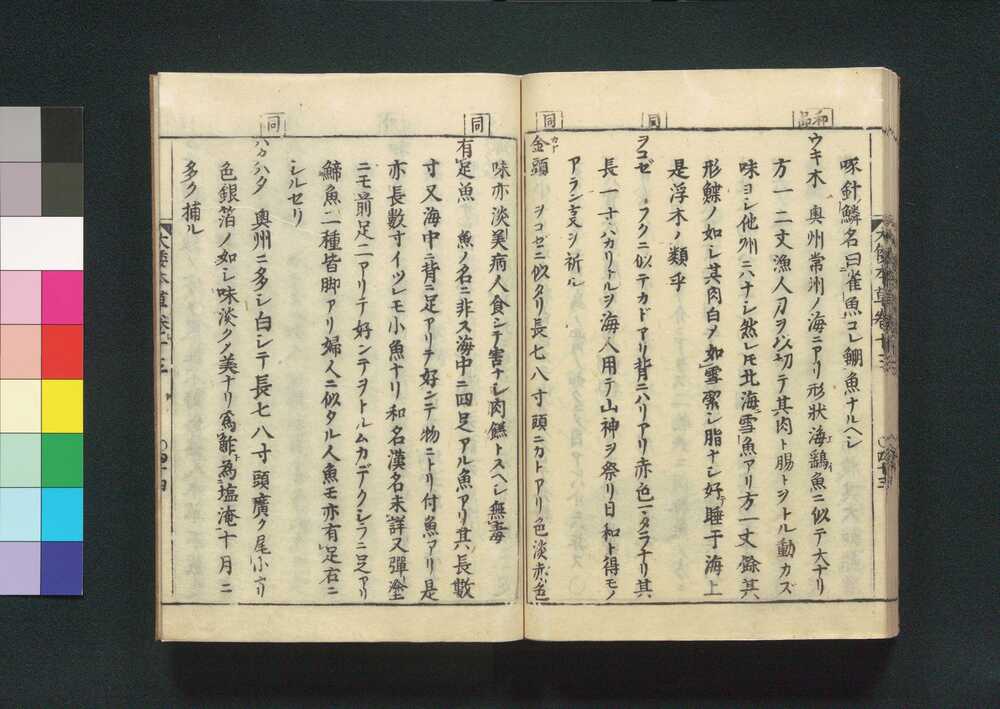 啄針鱗名曰雀魚コレ鯯魚ナルヘシ
和品
ウキ木 奥州常州ノ海ニアリ形状海鷂魚ニ似テ大ナリ
方一二丈漁人刀ヲ以切テ其肉ト腸トヲトル動カズ
味ヨシ他州ニハナシ然レモ北海雪魚アリ方一丈餘其
形鰈ノ如シ其肉白ク如雪潔シ脂ナシ好睡于海上
是浮木ノ類乎
同
ヲコゼ フクニ似テカドアリ背ニハリアリ赤色マダラナリ其
長一寸ハカリトルヲ海人用テ山神ヲ祭リ日和ト得モノ
アラン支ヲ祈ル
同
金頭 ヲコゼニ似タリ長七八寸頭ニカトアリ色淡赤色
味亦淡美病人食シテ害ナシ肉鱠トスヘシ無毒
同
有足魚 魚ノ名ニ非ス海中ニ四足アル魚アリ其長數
寸又海中ニ背ニ足アリテ好ンテ物ニトリ付魚アリ是
亦長數寸イツレモ小魚ナリ和名漢名未詳又彈塗
ニモ前足二アリテ好ンテヲトルムカデクシラニ足アリ
鯑魚二種皆脚アリ婦人ニ似タル人魚モ亦有足右ニ
シルセリ
同
ハタハタ 奥州ニ多シ白シテ長七八寸頭廣ク尾小ナリ
色銀箔ノ如シ味淡ク美ナリ為鮓為塩淹十月ニ
多ク捕ル
大倭本草卷十三
四十四
大倭本草卷十三
四十三